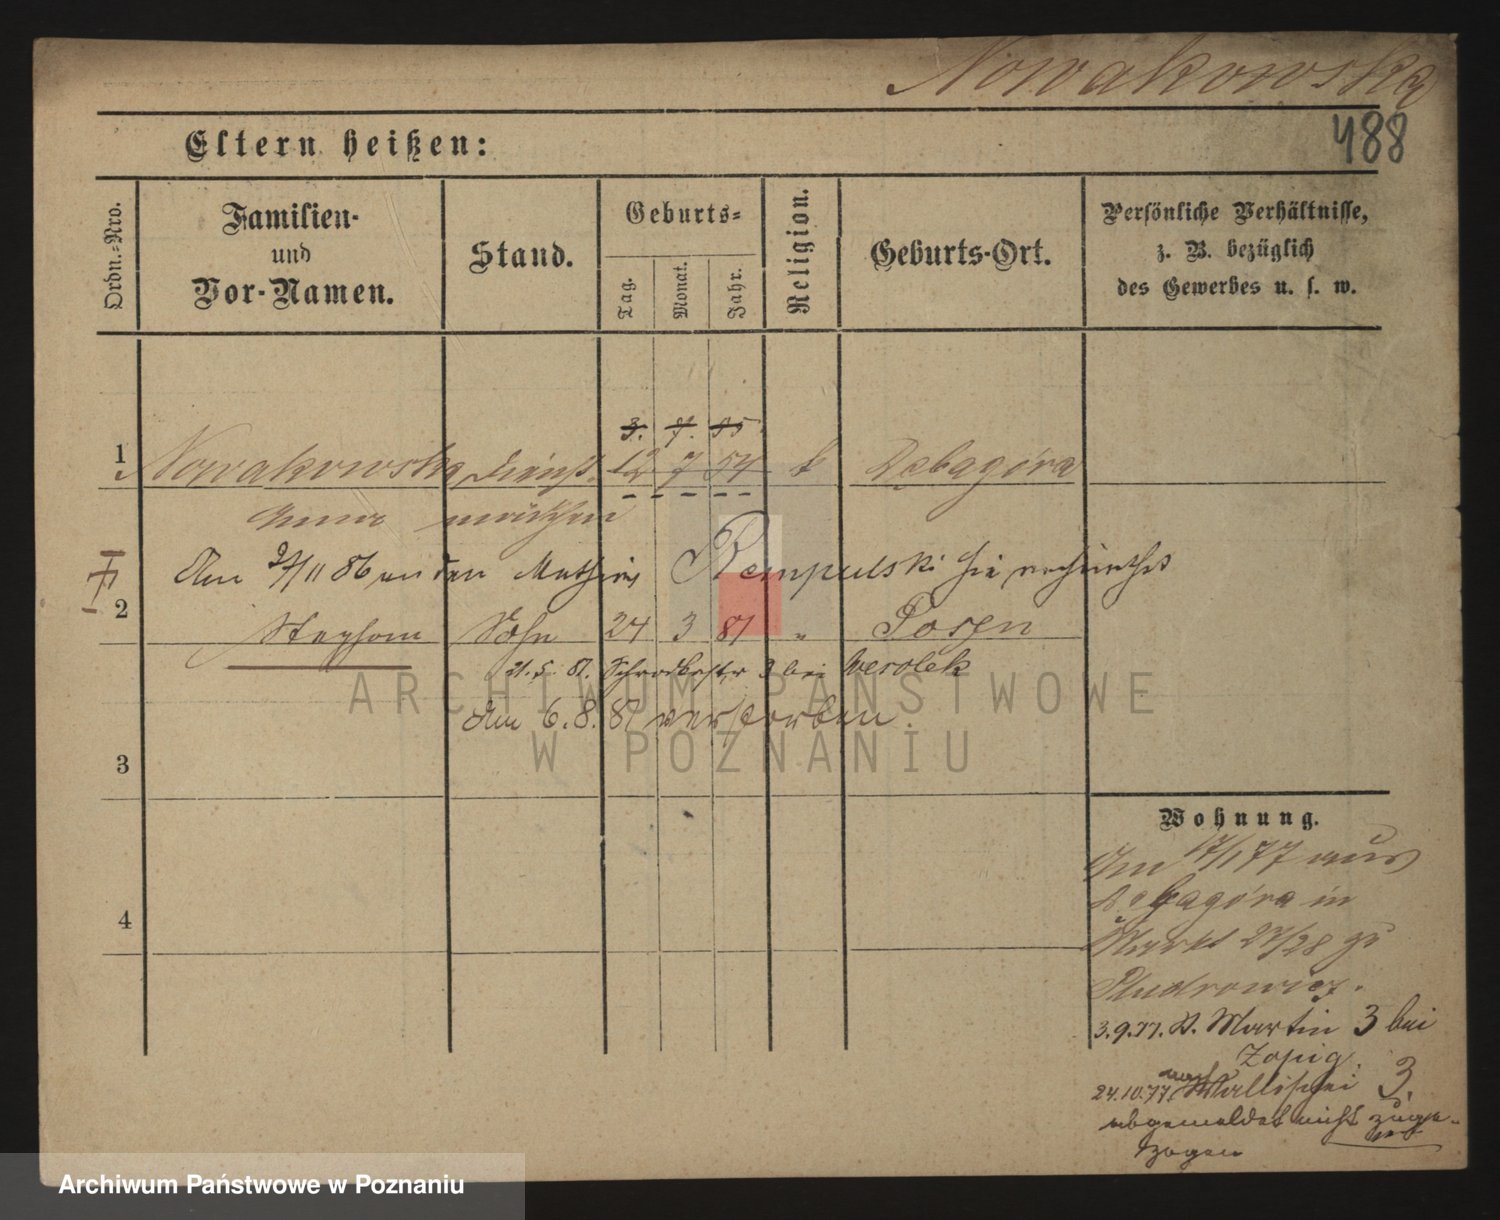 Nowakowska
488
Eltern heißen:
Ordn.-Nro.
Familien-
und
Vor-Namen.
Stand.
Geburts-
Tag.
Monat.
Jahr.
Religion.
Geburts-Ort.
Persönliche Verhältnisse,
z. B. bezüglich
des Gewerbes u. s. w.
3. 7. 55
1 Nowakowska Dienst- 12 7 54 k Debagóra
Anna mädchen
Am 27/11 86 an den Mathias Rempulski hie verheirathet
2 Stephan Sohn 24 3 87 " Posen
21.5.87. 3 bei Werolek
Am 6.8.87 verstorben.
3
4
Wohnung.
Am 17/1 77 aus
Debagóra in
Markt 27/28 zu
Pludrowicz.
3.9.77. St. Martin 3 bei
Zapig.
24.10.77. nach Wallischei 3
abgemeldet nicht zuge-
zogen
ARCHIWUM PAŃSTWOWE
W POZNANIU
Archiwum Państwowe w Poznaniu